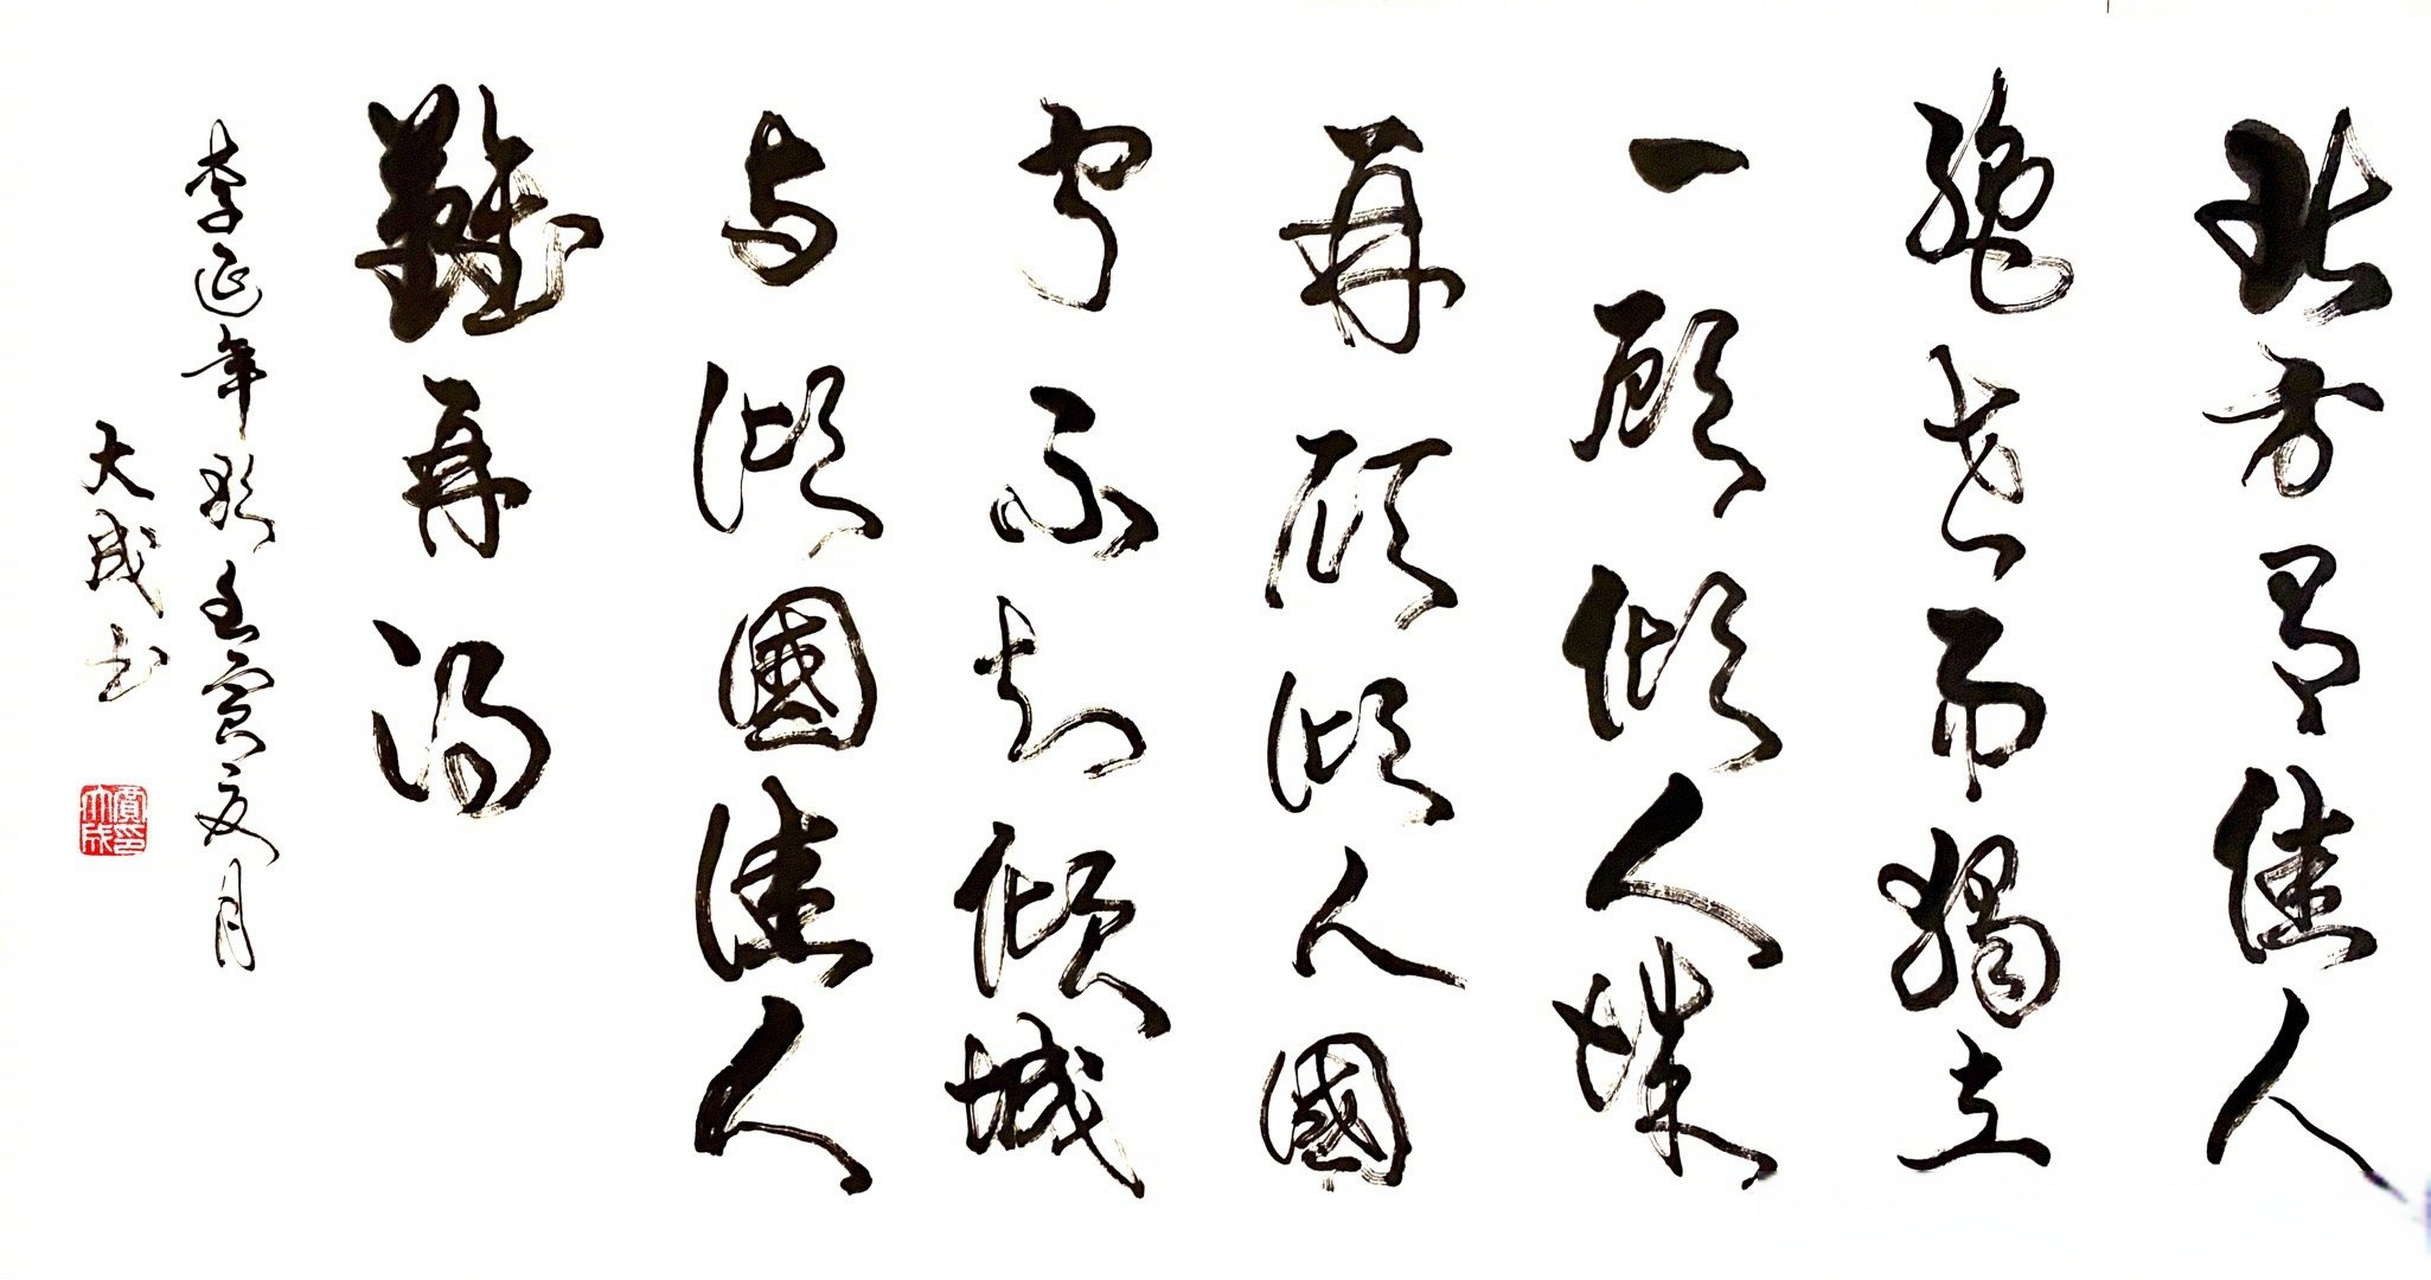 北方有佳人
絕世而獨立
一顧傾人城
再顧傾人國
宁不知傾城
与傾國佳人
難再得
李延年歌壬寅夏月
大成书
賈印大成